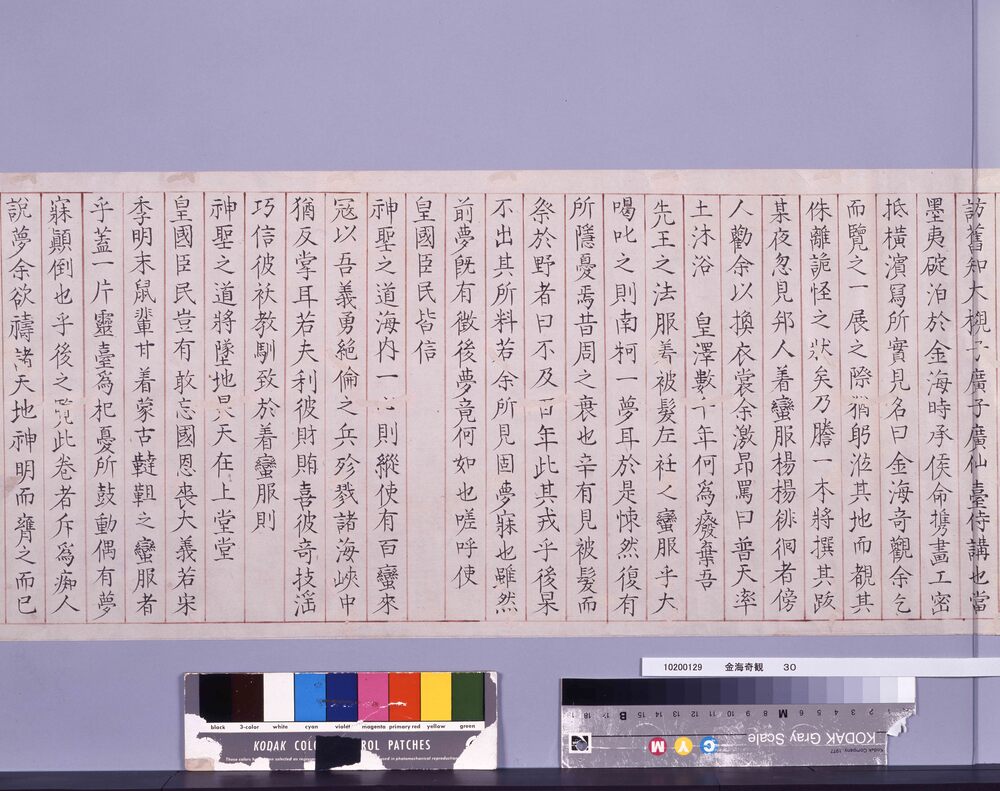 訪舊知大槻子廣子廣仙臺侍講也當
墨夷碇泊於金海時承侯命携畫工密
抵橫濱寫所實見名曰金海奇觀余乞
而覽之一展之際猶躬涖其地而覩其
侏離詭怪之狀矣乃謄一本將撰其跋
某夜忽見邦人着蠻服楊楊徘徊者傍
人勸余以換衣裳余激昂罵曰普天率
土沐浴 皇澤數千年何爲廢棄吾
先王之法服着被髮左衽之蠻服乎大
喝叱之則南柯一夢耳於是悚然復有
所隱憂焉昔周之衰也辛有見被髮而
祭於野者曰不及百年此其戎乎後果
不出其所料若余所見固夢寐也雖然
前夢旣有徵後夢竟何如也嗟呼使
皇國臣民皆信
神聖之道海内一 則縱使有百蠻來
寇以吾義勇絶倫之兵殄戮諸海峽中
猶反掌耳若夫利彼財賄喜彼奇技滛
巧信彼祅教馴致於着蠻服則
神聖之道將墜地昊天在上堂堂
皇國臣民豈有敢忘國恩喪大義若宋
季明末鼠輩甘着蒙古韃靼之蠻服者
乎蓋一片靈臺爲杞憂所鼓動偶有夢
寐顚倒也乎後之覽此卷者斥爲痴人
說夢余欲禱諸天地神明而齎之而已
10200129 金海奇観 30
black 3-color white cyan violet magenta primary red yellow green
KODAK COLO ROL PATCHES
KODAK Gray Scale
Kodak Company, 1977
C Y M
1 2 3 4 5 6 M 8 9 10 11 12 13 14 15 B 17 18 19